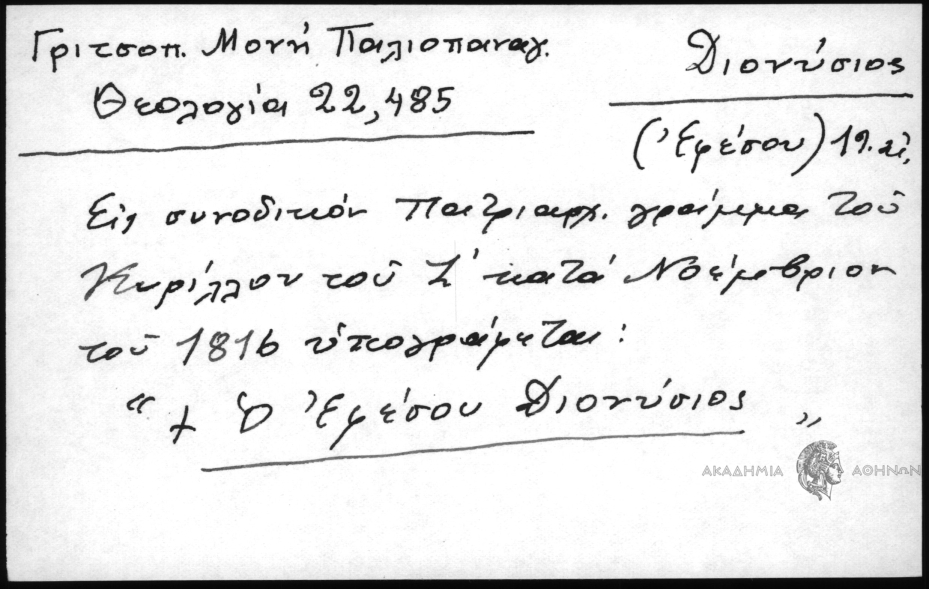 Γριτσοπ. Μονή Παλιοπαναγ.
Θεολογία 22,485
Διονύσιος
(Ἐφέσου) 19. αἰ.
Εἰς συνοδικόν Πατριαρχ. γράμμα τοῦ
Κυρίλλου τοῦ Ϛ' κατά Νοέμβριον
τοῦ 1816 ὑπογράφεται:
“ + Ὁ Ἐφέσου Διονύσιος „
ΑΚΑΔΗΜΙΑ ΑΘΗΝΩΝ